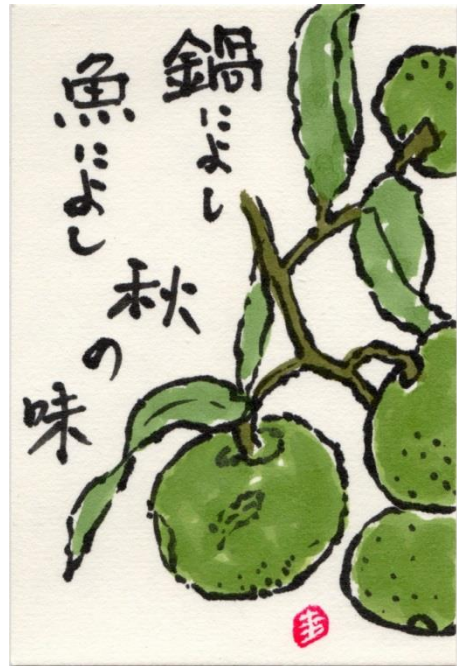 鍋によし
魚によし
秋
の
味